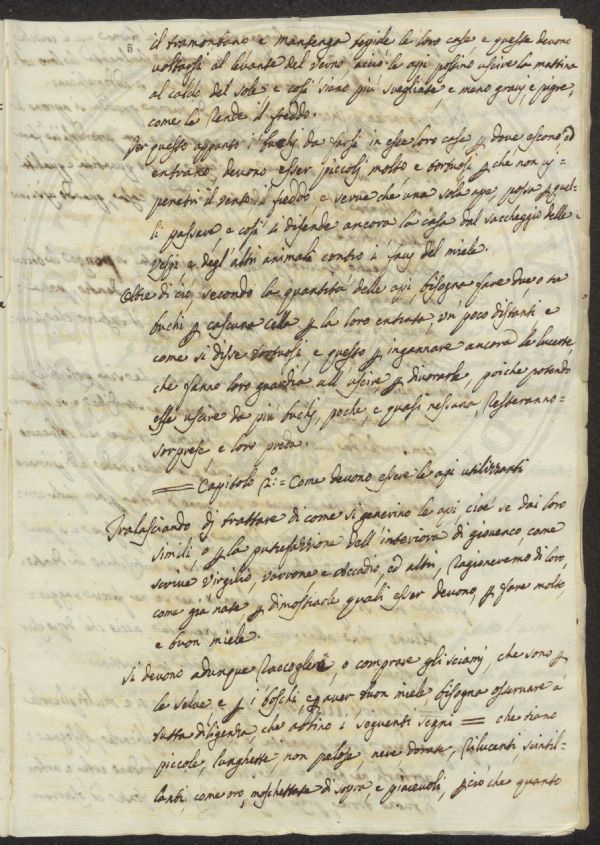 5
il tramontano e mantenga tepide le loro case, e queste devono
voltarsi al levante del verno, acciò le api possino uscire la mattina
al caldo del sole e così siano più svegliate, e meno gravi e pigre,
come le rende il freddo.
Per questo appunto i buchi da farsi in esse loro case p dove escono ed
entrano, devono esser piccoli molto e tortuosi p ché non vi
penetri il vento, il freddo, e serve che una sola ape possa p quel-
li passare e così si difende ancora la casa dal saccheggio delle
vespi e degl'altri animali contro i favi del miele.
Oltre di ciò, secondo la quantità delle api, bisogna fare due o tre
buchi p cascuna cella p la loro entrata, un poco distanti e
come si disse tortuosi, e questo p ingannare ancora le lucerte,
che fanno loro guardia all'uscire, p divorarle, poiche potendo
esse uscire da più buchi, poche, e quasi nessuna, resteranno
sorprese, e loro preda.
Capitolo 2.º = Come devono essere le api utilizzanti
Tralasciando di trattare di come si generino le api cioè se dai loro
simili, o p la putrefazzione dall'interiora di giovenco, come
scrive Virgilio, Varrone e Accadio, ed altri, ragioneremo di loro,
come già nate, p dimostrarle quali esser devono, p fare molto,
e buon miele.
Si devono adunque raccogliere, o comprare gli sciami, che sono p
le selve e p i boschi, e p aver buon miele bisogna osservare a
tutta diligenza che abbino i seguenti segni = che siano
piccole, lunghette, non pelose, neve dorate, rilucenti, scintil-
lanti, come oro, moschettate di sopra, e piacevoli, p ciò che quanto